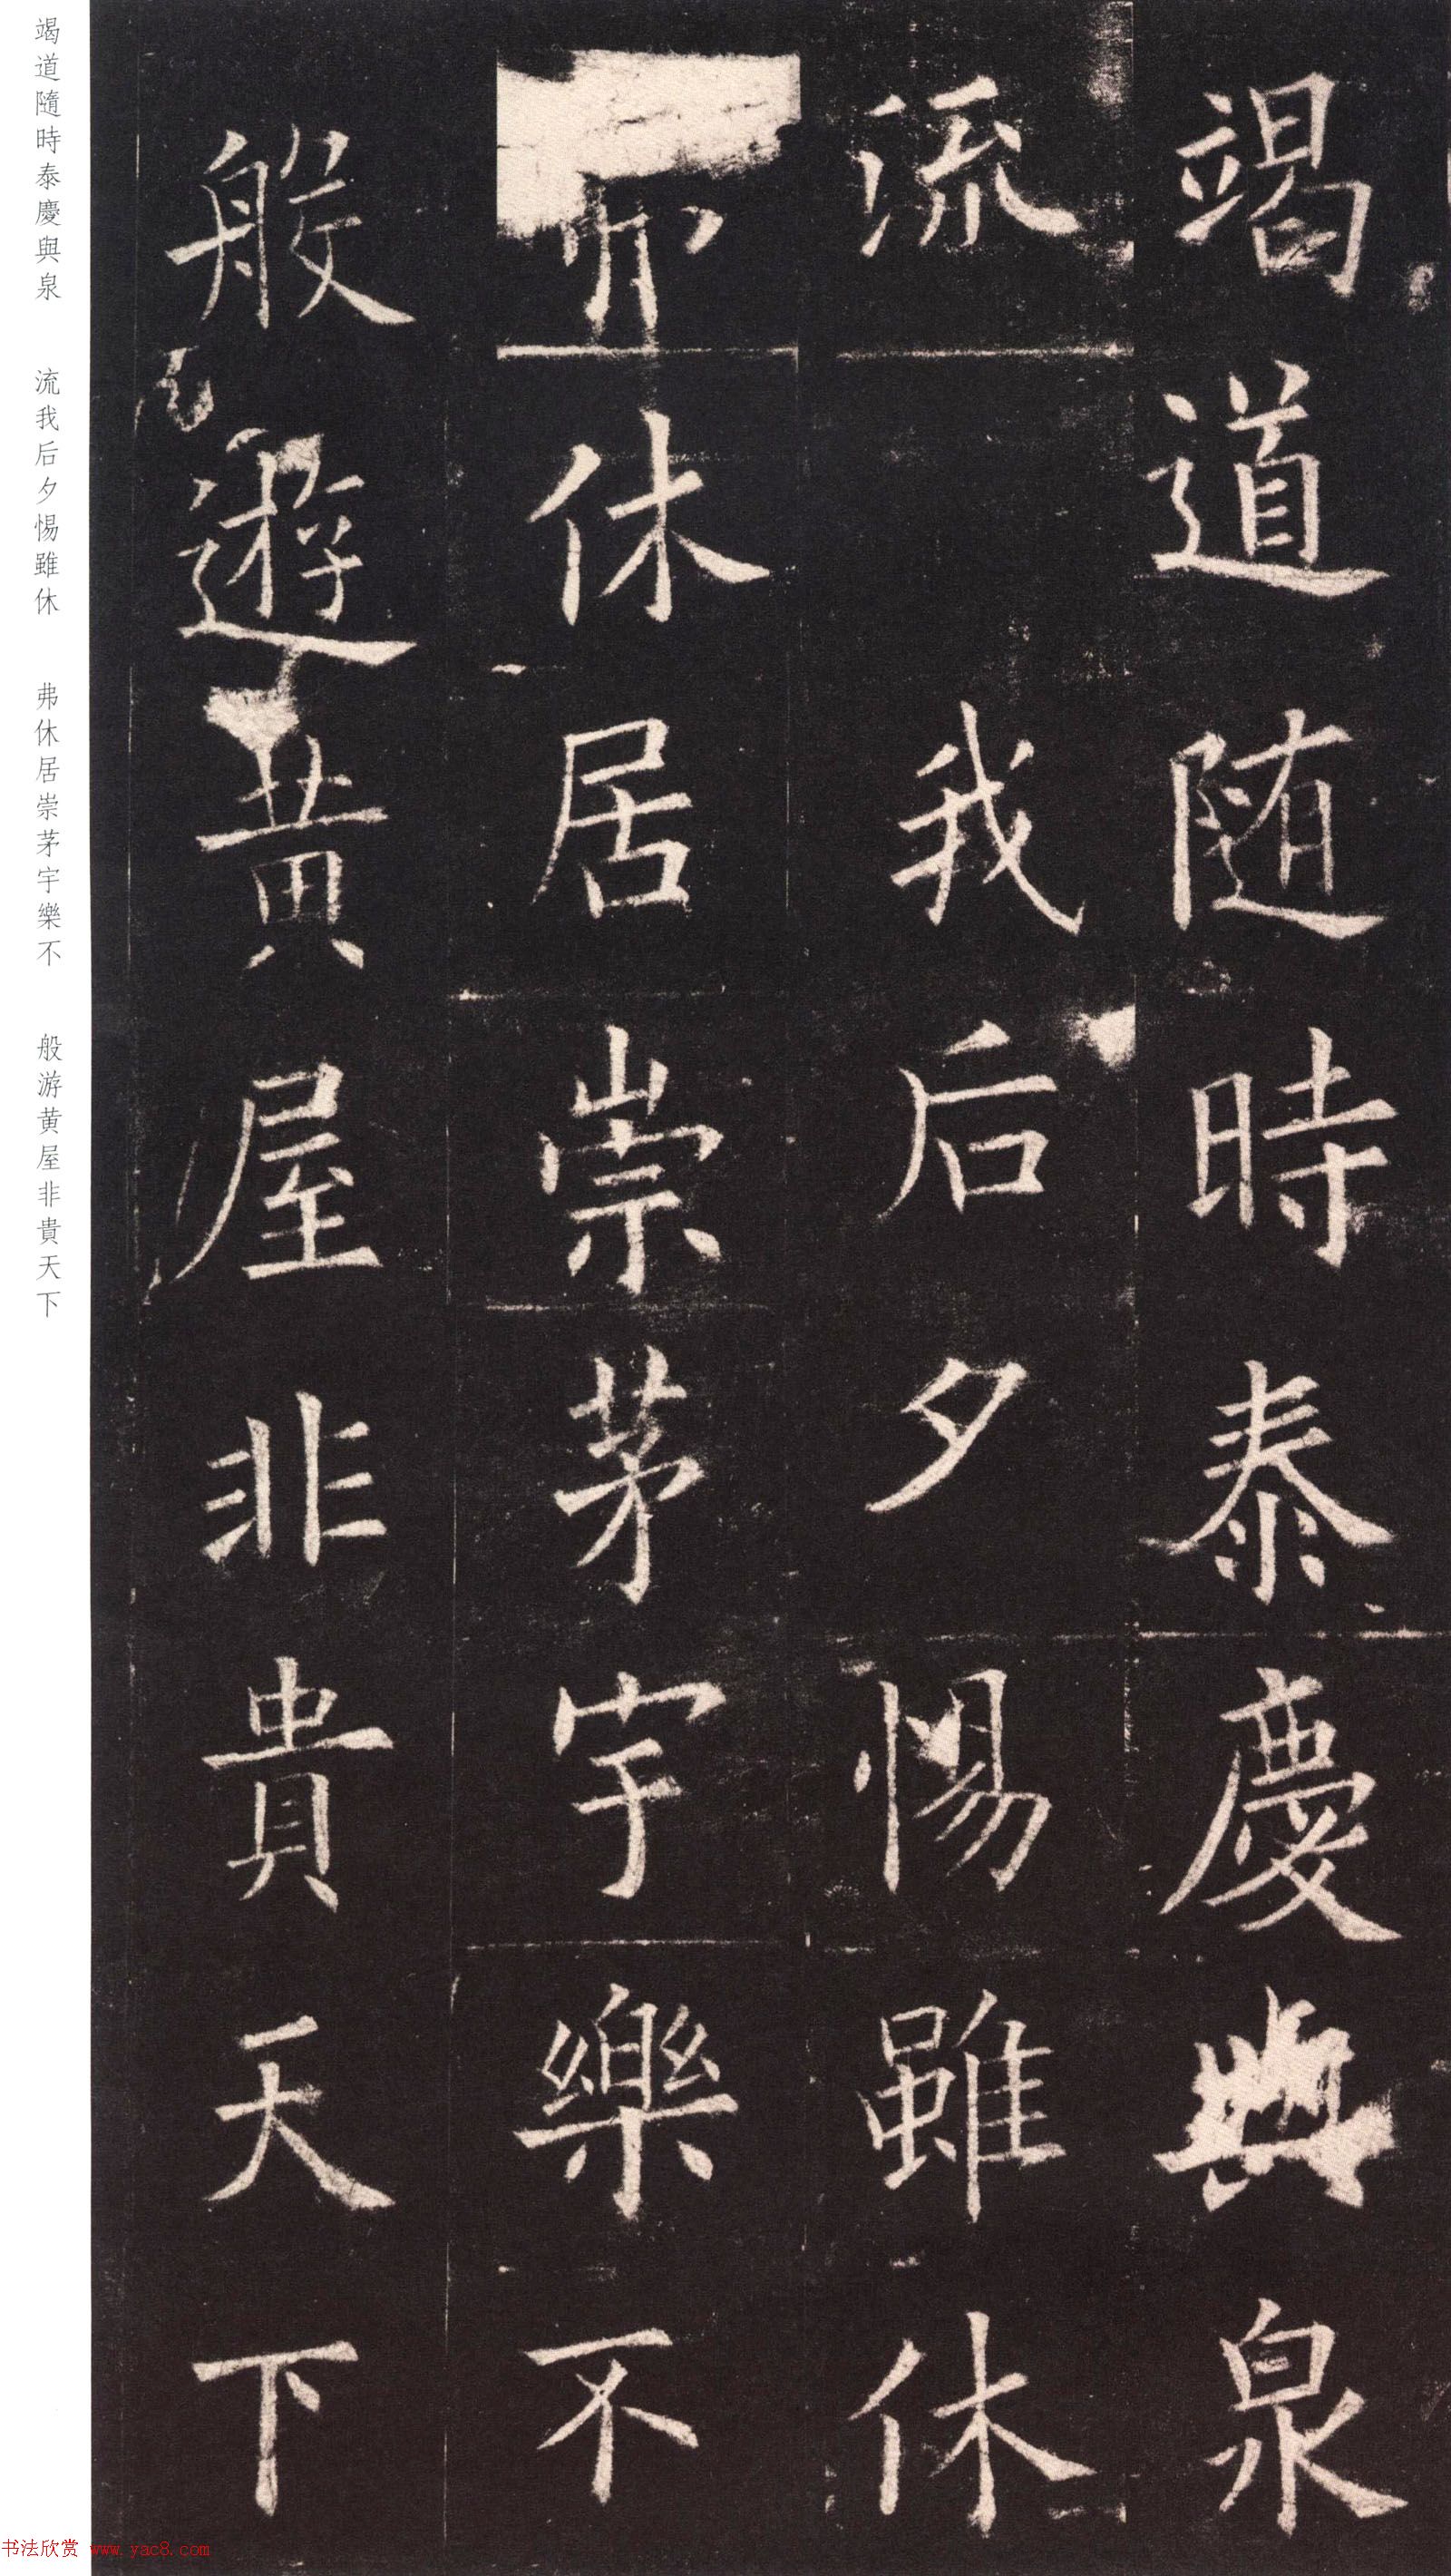 竭道随時泰慶與泉
流我后夕惕雖休
弗休居崇茅宇樂不
般遊黄屋非貴天下
竭道隨時泰慶與泉　流我后夕惕雖休　弗休居崇茅宇樂不　般游黄屋非貴天下
书法欣赏 www.yac8.com